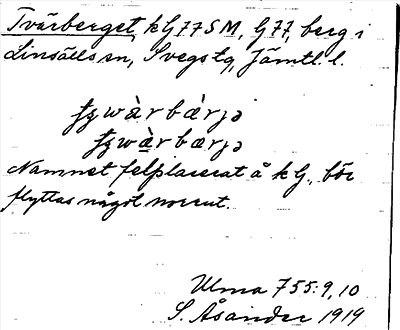 Tvärberget, kG 77 SM, G 77, berg i
Linsälls sn, Svegs tg, Jämtl. l.
wàrbærjə
wàrbærjə
Namnet felplacerat å kG., bör
flyttas något norrut.
Ulma 755:9, 10
S. Åsander 1919